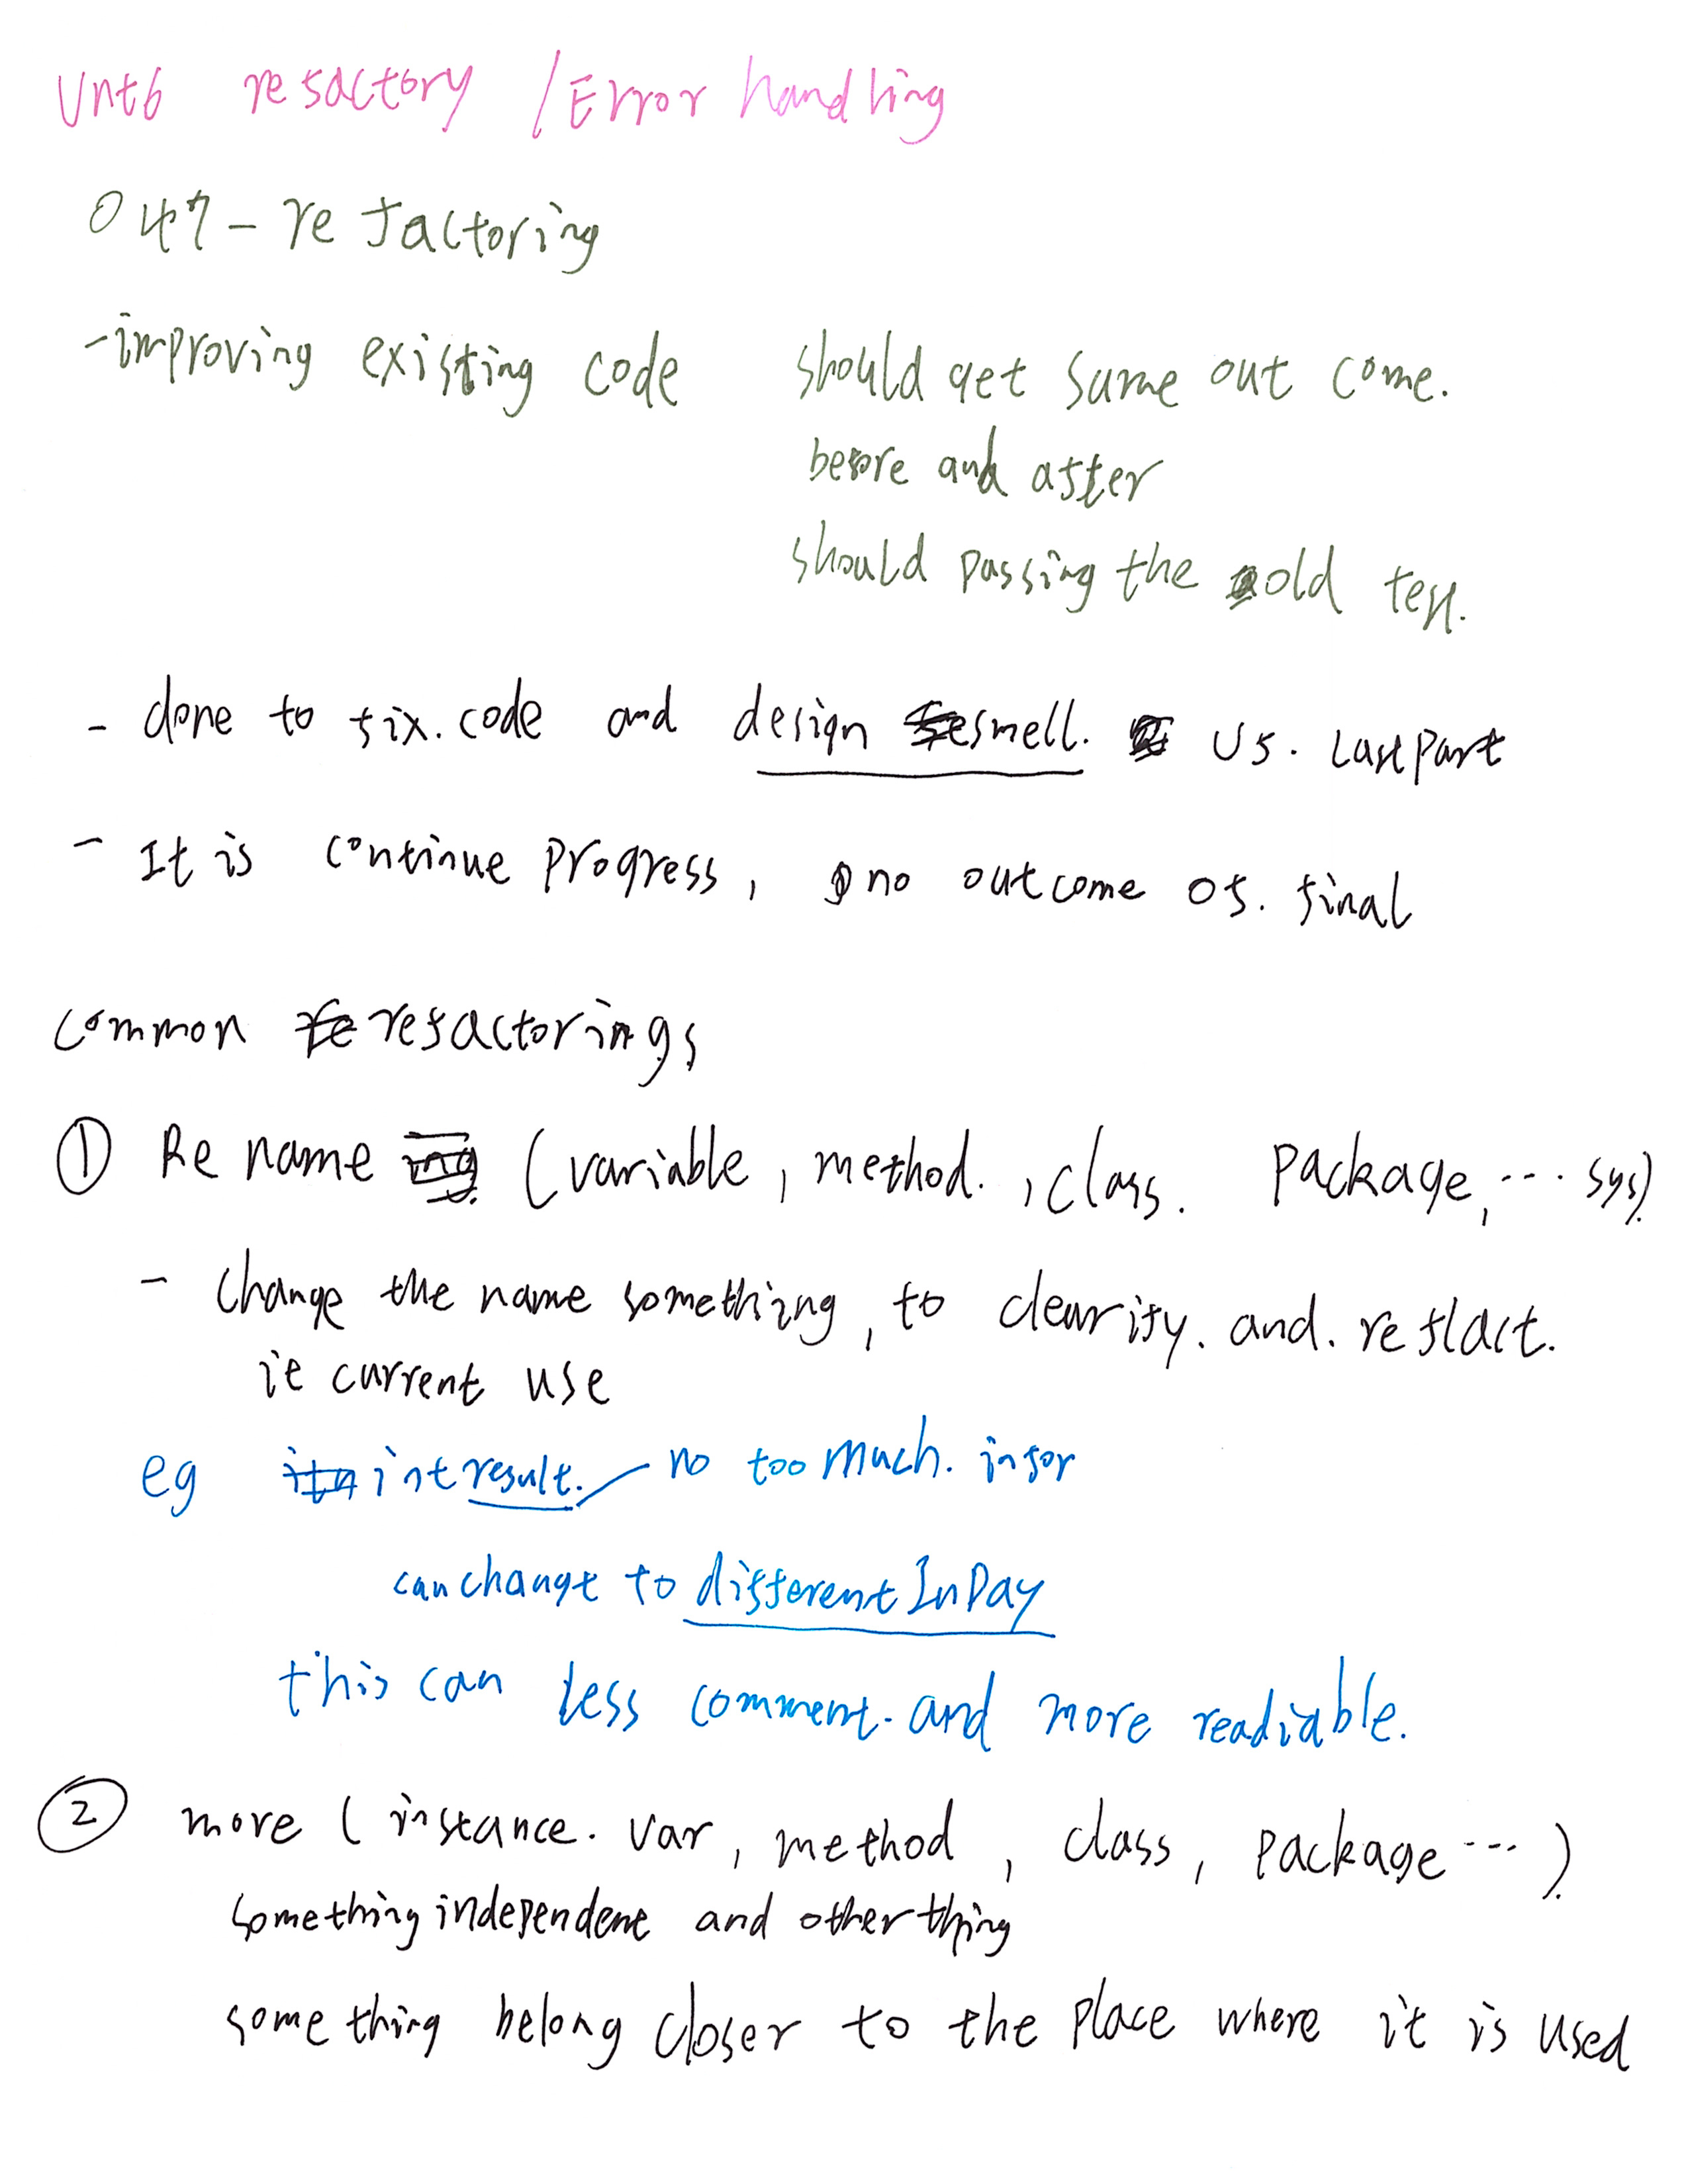 Unt6 refactory / Error handling
047 - refactoring
- improving existing code should get same out come.
before and after
should passing the old test.
- done to fix. code and design smell. U5. Last part
- It is continue progress, no outcome of. final
common refactorings
① Re name (variable, method. , class. package, ... sys)
- change the name something, to clearity. and. reflact.
it current use
eg int result. no too much. infor
can change to differentInDay
this can less comment. and more readiable.
② more ( instance. var, method , class, package ... )
something independent and other thing
some thing belong closer to the place where it is used